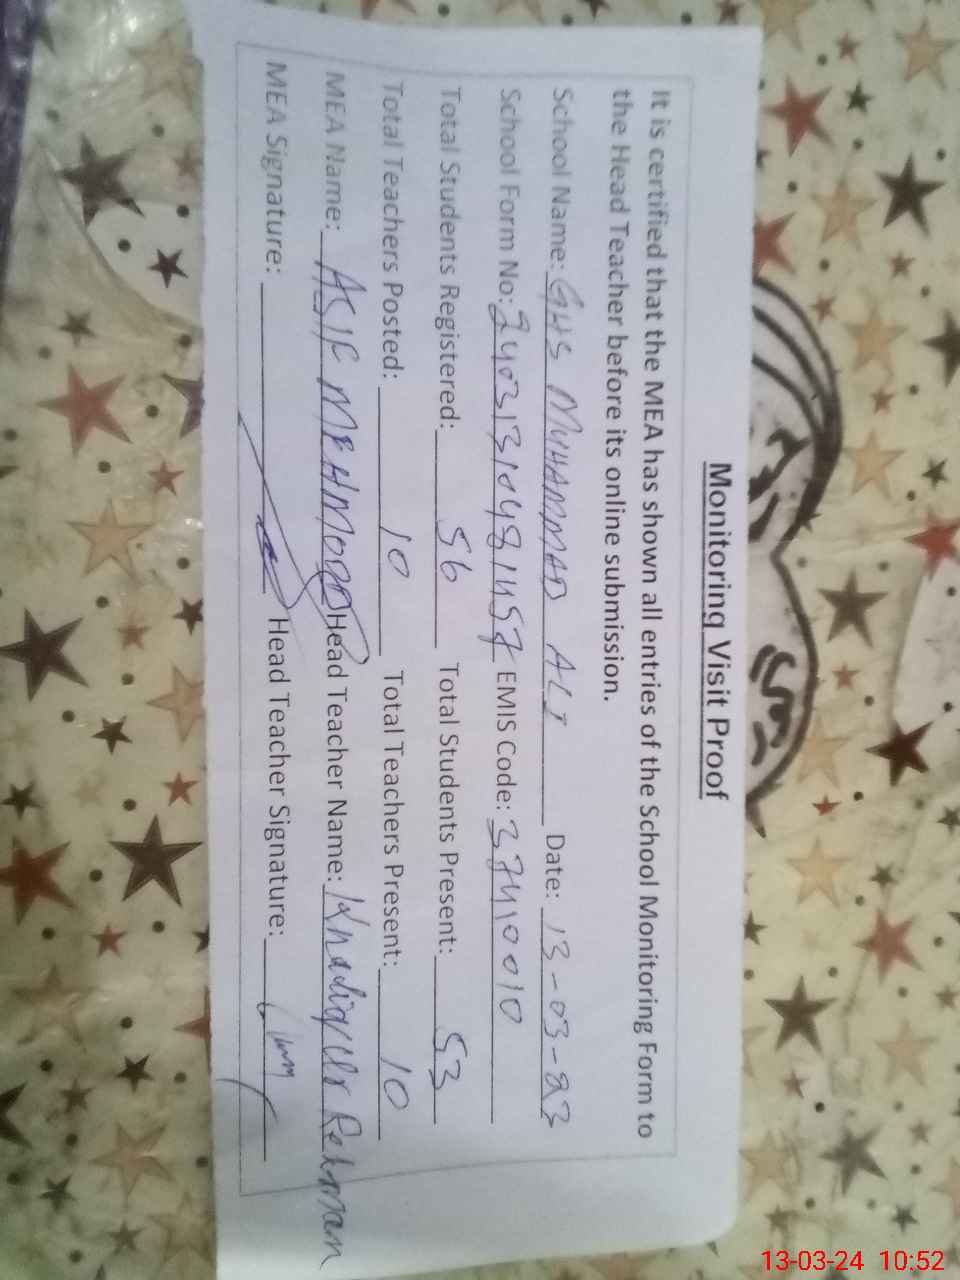 Monitoring Visit Proof
It is certified that the MEA has shown all entries of the School Monitoring Form to
the Head Teacher before its online submission.
School Name: GHS MUHAMMAD ALI Date: 13-03-23
School Form No: 24031310481457 EMIS Code: 37410010
Total Students Registered: 56 Total Students Present: 53
Total Teachers Posted: 10 Total Teachers Present: 10
MEA Name: ASIF MEHMOOD Head Teacher Name: Rehman
MEA Signature: Head Teacher Signature:
13-03-24 10:52